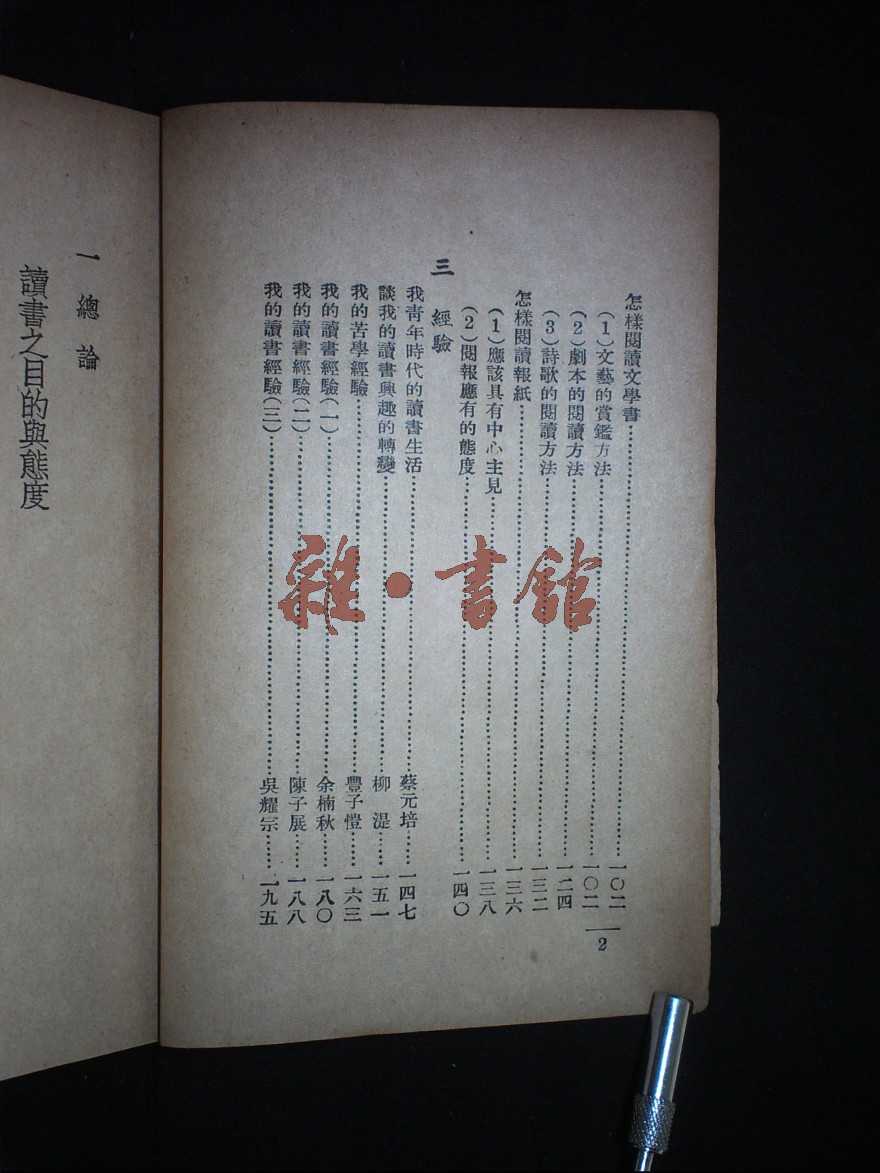 怎樣閱讀文學書……一〇二
(1)文藝的賞鑑方法……一〇二
(2)劇本的閱讀方法……一二四
(3)詩歌的閱讀方法……一三二
怎樣閱讀報紙……一三六
(1)應該具有中心主見……一三八
(2)閱報應有的態度……一四〇
三 經驗
我靑年時代的讀書生活……蔡元培……一四七
談我的讀書興趣的轉變……柳湜……一五一
我的苦學經驗……豐子愷……一六三
我的讀書經驗(一)……余楠秋……一八〇
我的讀書經驗(二)……陳子展……一八八
我的讀書經驗(三)……吳耀宗……一九五
2
一 總論
讀書之目的與態度
雜·書館